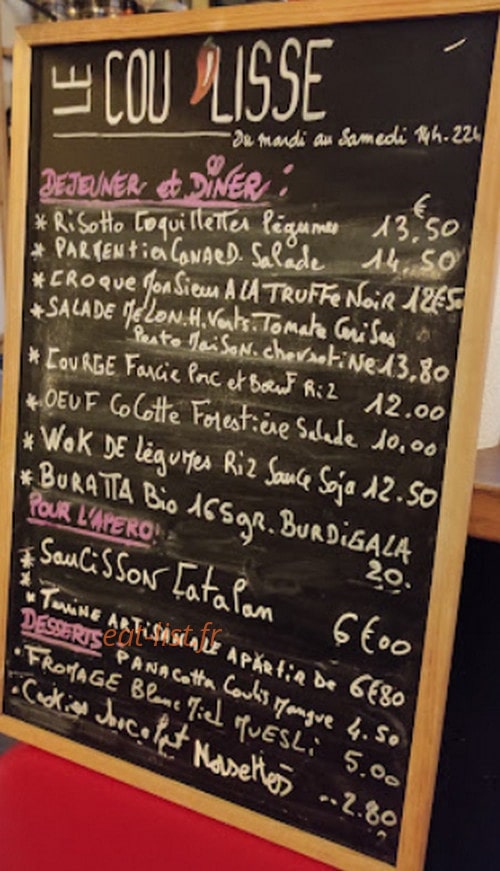 LE COU LISSE
Du mardi au Samedi 14h-22h
DEJEUNER et DINER :
€
* Risotto Coquillettes légumes 13,50
* PARMENTIER CANARD. Salade 14,50
* CROQUE MONSIEUR A LA TRUFFE NOIR 12€50
* SALADE MELON.H.Verts.Tomate Cerises
Pesto Maison.chevrotine 13,80
* COURGE Farcie Porc et Boeuf Riz 12.00
* OEUF CoCotte Forestière Salade 10,00
* WOK DE légumes Riz Sauce Soja 12.50
* BURATTA Bio 165gr. BURDIGALA
20.
POUR L'APERO
* SAUCISSON Catalan 6€00
* TERRINE ARTISANALE APARTIR DE 6€80
DESSERTS PANACOTTA Coulis Mangue 4.50
FROMAGE Blanc Miel MUESLI 5.00
Cookies chocolat Noisettes 2.80
eat-list.fr